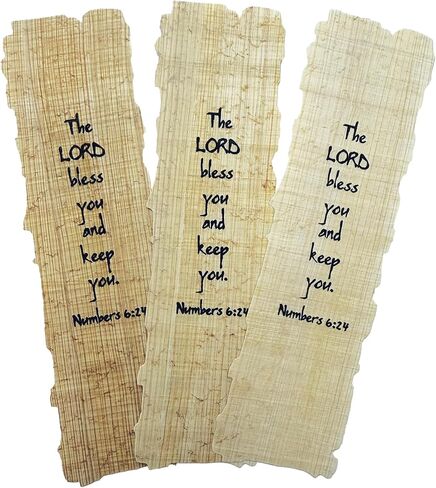 The
LORD
bless
you
and
keep
you.
Numbers 6:24
The
LORD
bless
you
and
keep
you.
Numbers 6:24
The
LORD
bless
you
and
keep
you.
Numbers 6:24